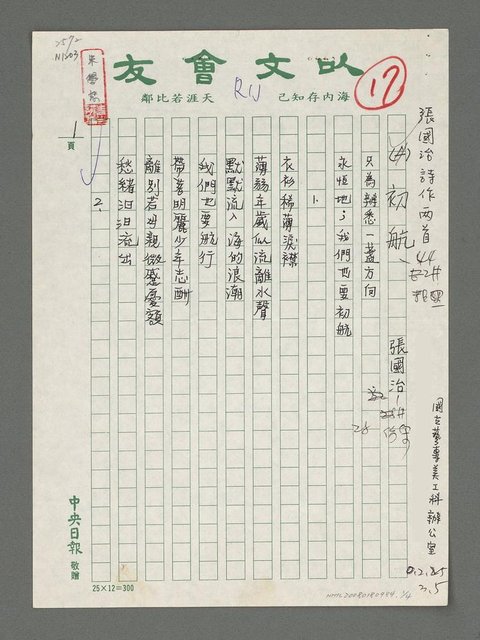 以文會友
海內存知己
天涯若比鄰
17
RW
N1203
張國治詩作兩首
初航
張國治
國立藝專美工科辦公室
只為辨悉一盞方向
永恆地；我們也要初航
1.
衣衫稀薄淚襟
薄弱年歲似流離水聲
默默流入海的浪潮
我們也要航行
帶著明麗少年志酬
離別若母親微蹙憂額
愁緒汩汩流出
2.
1頁
中央日報敬贈
25×12=300